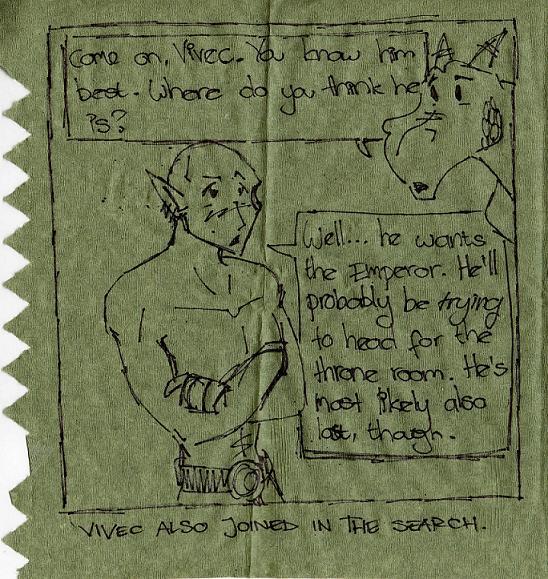 Come on, Vivec. You know him
best. Where do you think he
is?
Well... he wants
the Emperor. He'll
probably be trying
to head for the
throne room. He's
most likely also
lost, though.
VIVEC ALSO JOINED IN THE SEARCH.